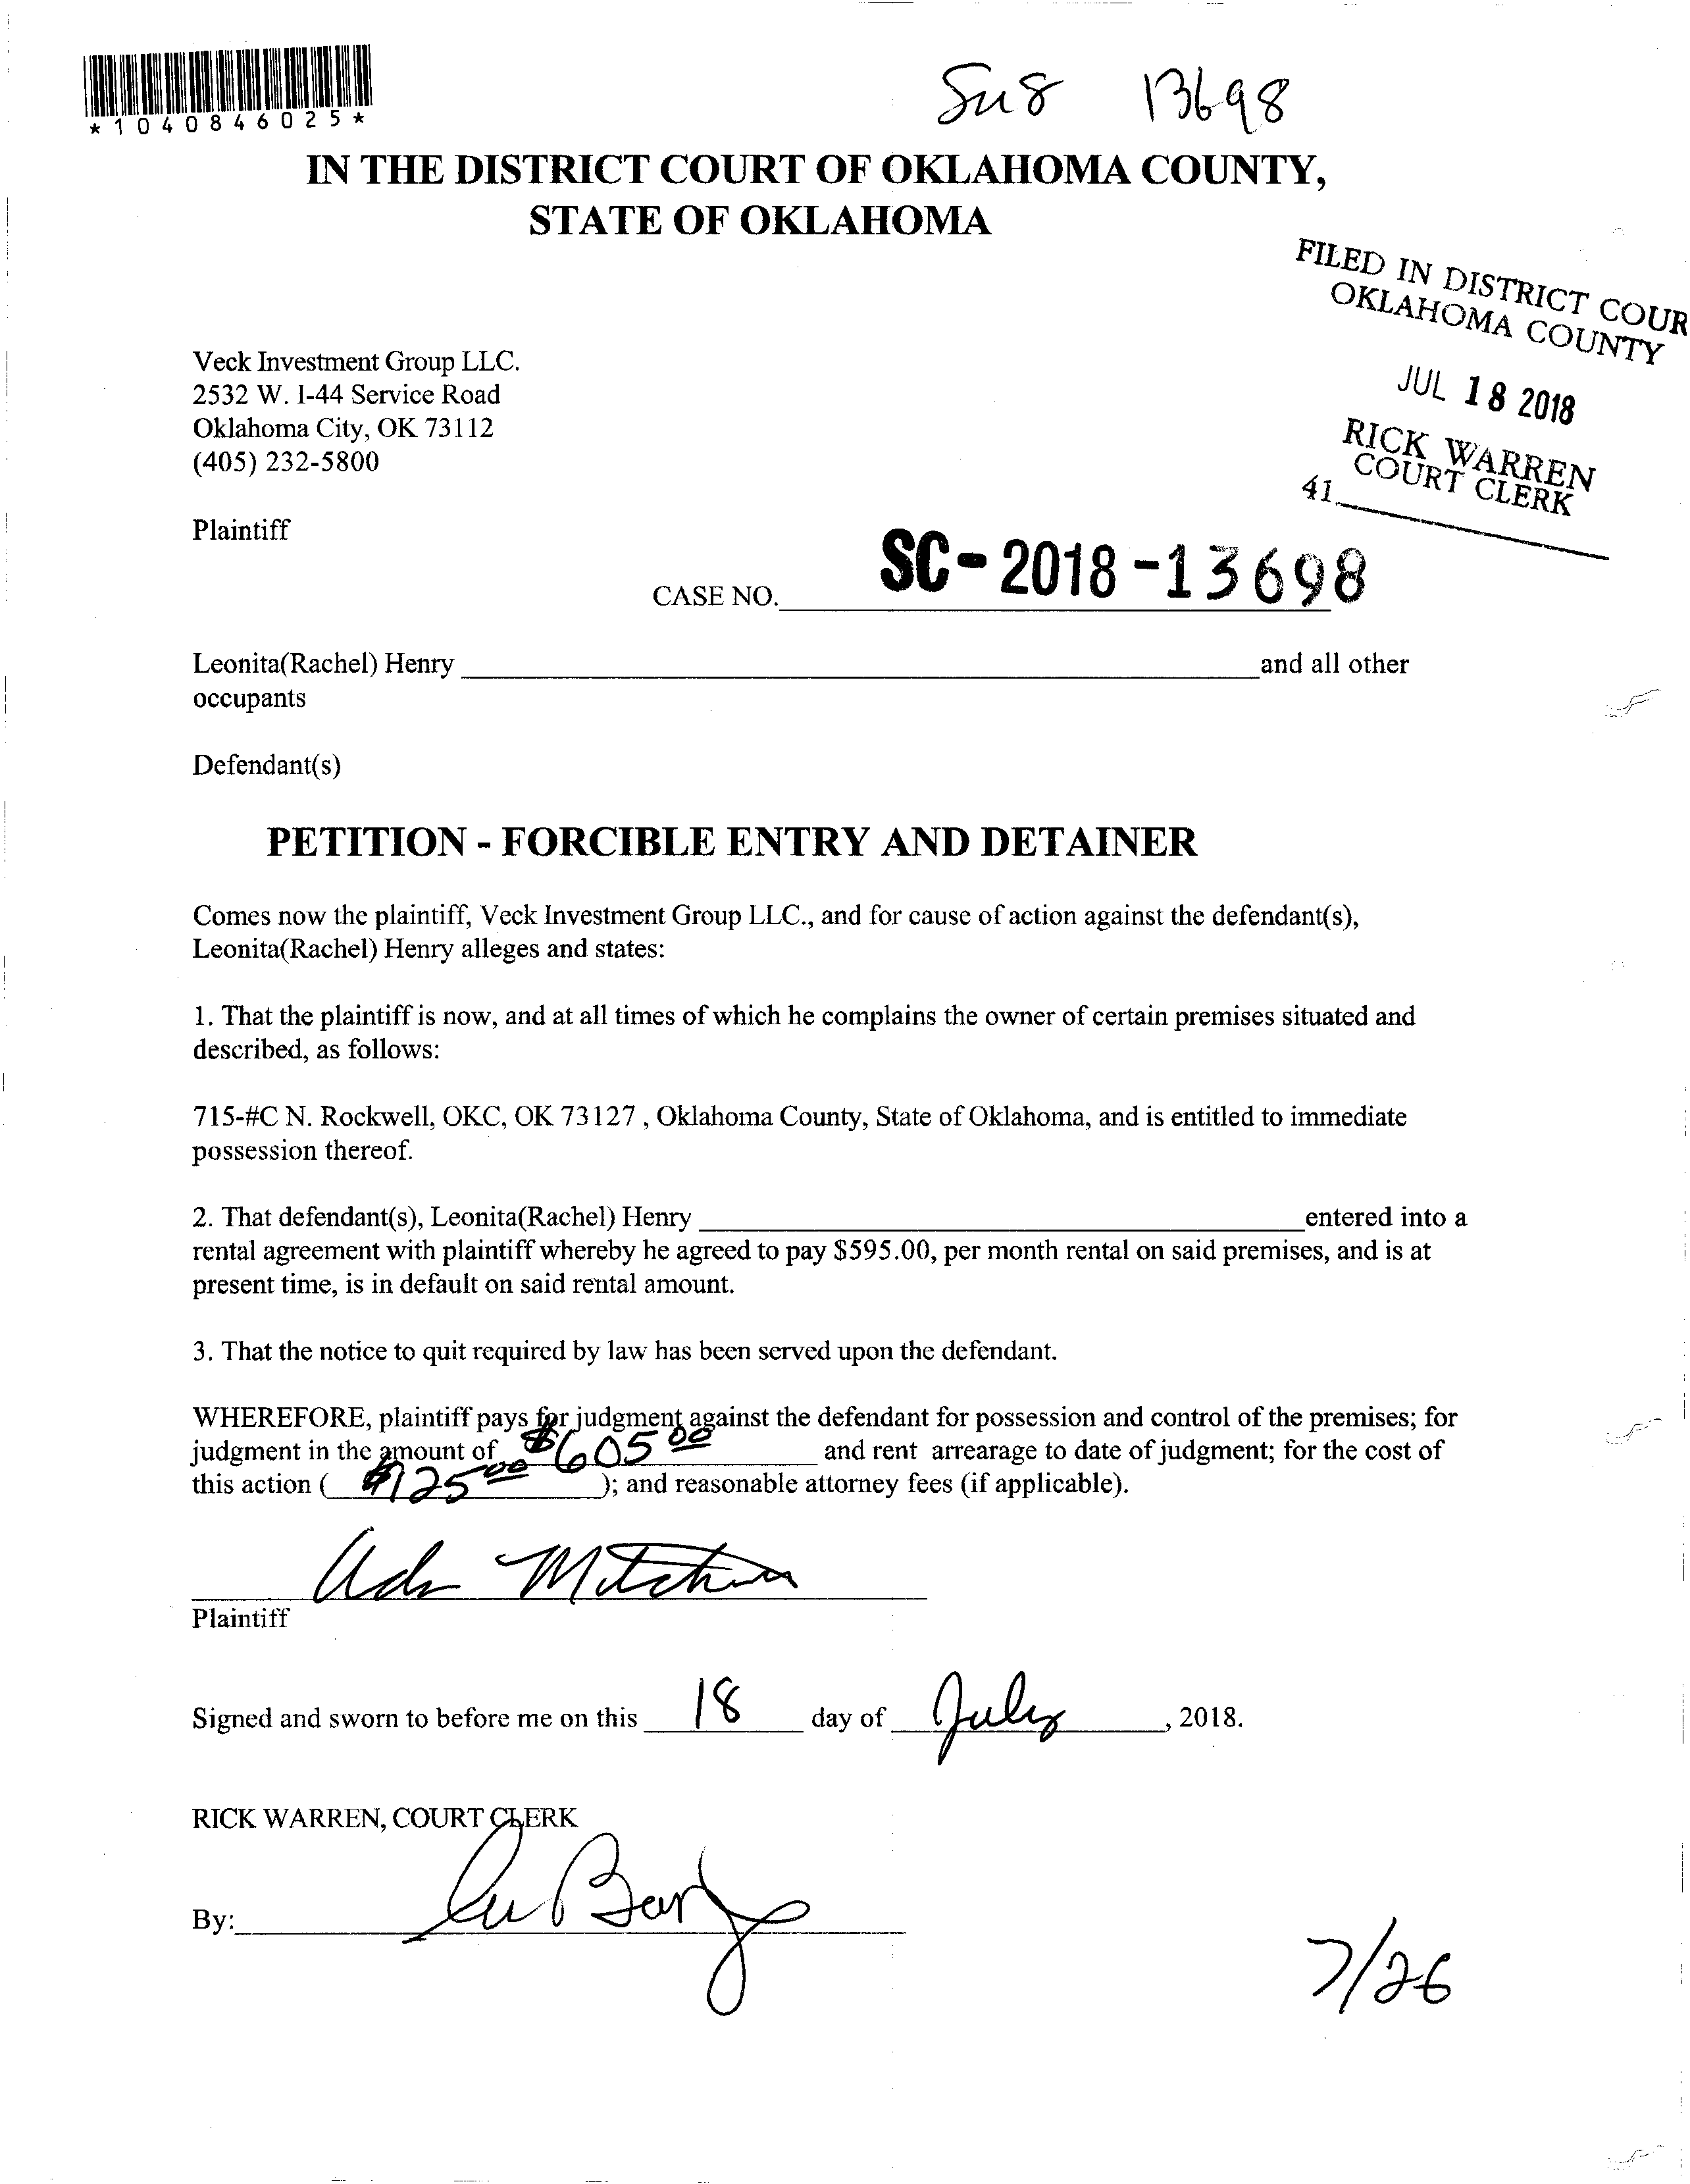 *1040846025*
13698
IN THE DISTRICT COURT OF OKLAHOMA COUNTY,
STATE OF OKLAHOMA
FILED IN DISTRICT COUR
OKLAHOMA COUNTY
JUL 18 2018
RICK WARREN
COURT CLERK
41
Veck Investment Group LLC.
2532 W. I-44 Service Road
Oklahoma City, OK 73112
(405) 232-5800
Plaintiff
CASE NO. SC-2018-13698
Leonita(Rachel) Henry and all other
occupants
Defendant(s)
PETITION - FORCIBLE ENTRY AND DETAINER
Comes now the plaintiff, Veck Investment Group LLC., and for cause of action against the defendant(s),
Leonita(Rachel) Henry alleges and states:
1. That the plaintiff is now, and at all times of which he complains the owner of certain premises situated and
described, as follows:
715-#C N. Rockwell, OKC, OK 73127 , Oklahoma County, State of Oklahoma, and is entitled to immediate
possession thereof.
2. That defendant(s), Leonita(Rachel) Henry entered into a
rental agreement with plaintiff whereby he agreed to pay $595.00, per month rental on said premises, and is at
present time, is in default on said rental amount.
3. That the notice to quit required by law has been served upon the defendant.
WHEREFORE, plaintiff pays for judgment against the defendant for possession and control of the premises; for
judgment in the amount of $605 00 and rent arrearage to date of judgment; for the cost of
this action ( $125 00 ); and reasonable attorney fees (if applicable).
Plaintiff
Signed and sworn to before me on this 18 day of July, 2018.
RICK WARREN, COURT CLERK
By:
7/26